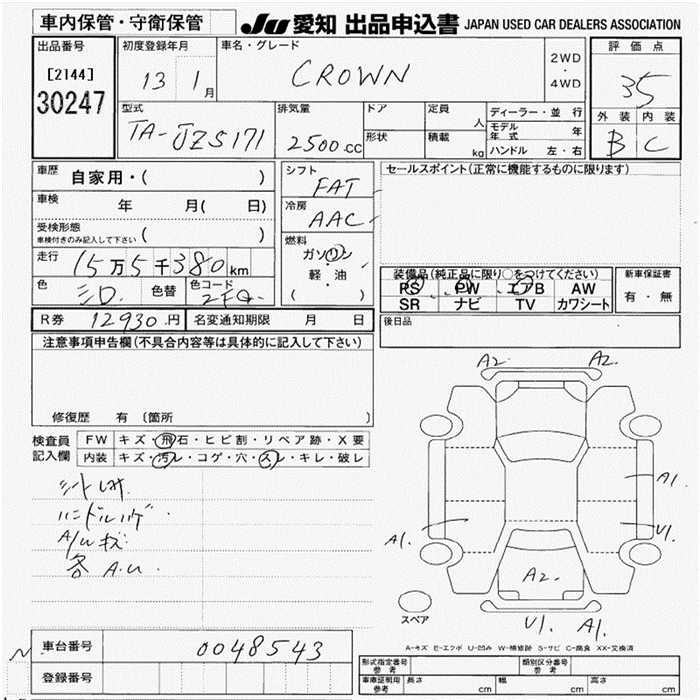 車内保管・守衛保管
JU 愛知 出品申込書 JAPAN USED CAR DEALERS ASSOCIATION
出品番号
[2144]
30247
初度登録年月
13 1月
車名・グレード
CROWN
2WD
・
4WD
評価点
35
外装 内装
B C
型式
TA-JZS171
排気量
2500.cc
ドア
形状
定員 人
積載 kg
ディーラー・並行
モデル年式 年
ハンドル 左・右
車歴 自家用・( )
車検 年 月( 日)
受検形態
車検付きのみ記入して下さい ( )
走行 15万5千380km
色 色替 色コード
シフト
FAT
冷房
AAC
燃料
ガソリン
・
軽・油
( )
セールスポイント(正常に機能するものに限ります)
装備品(純正品に限り○をつけてください)
PS PW エアB AW
SR ナビ TV カワシート
新車保証書
有・無
R券 12930.円 名変通知期限 月 日
後日品
注意事項申告欄(不具合内容等は具体的に記入して下さい)
修復歴 有 〔箇所 〕
検査員
記入欄
FW キズ・飛石・ヒビ割・リペア跡・X要
内装 キズ・汚レ・コゲ・穴・スレ・キレ・破レ
ハンドルハゲ
A/Uキズ
各A.U
A2. A2.
A1.
A1. U1.
A2.
U1. A1.
スペア
A-キズ E-エクボ U-凹み W-補修跡 S-サビ C-腐食 XX-交換済
車台番号 0048543
登録番号
形式指定番号
参考
類別区分番号
参考
車庫証明用
参考
長さ cm 幅 cm 高さ cm